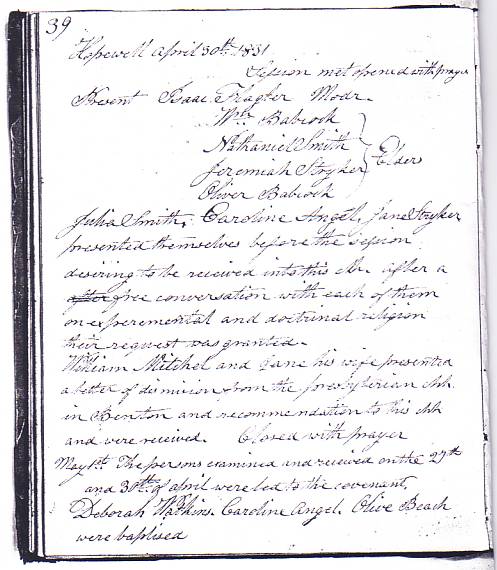 39
Hopewell April 30th 1831
Session met opened with prayer
Present Isaac Flagler Modr.
Wm Babcock
Nathaniel Smith
Jeremiah Stryker
Elder
Oliver Babcock
Julia Smith, Caroline Angel, Jane Stryker
presented themselves before the session
desiring to be received into this ch. after a
after free conversation with each of them
on experemental and doctrinal religion
their request was granted.
William Mitchel and Jane his wife presented
a letter of dismission from the presbyterian chh
in Benton and recommendation to this chh
and were received. Closed with prayer
May 1st The persons examined and received on the 29th
and 30th of april were led to the covenant,
Deborah Watkins. Caroline Angel. Olive Beach
were baptised